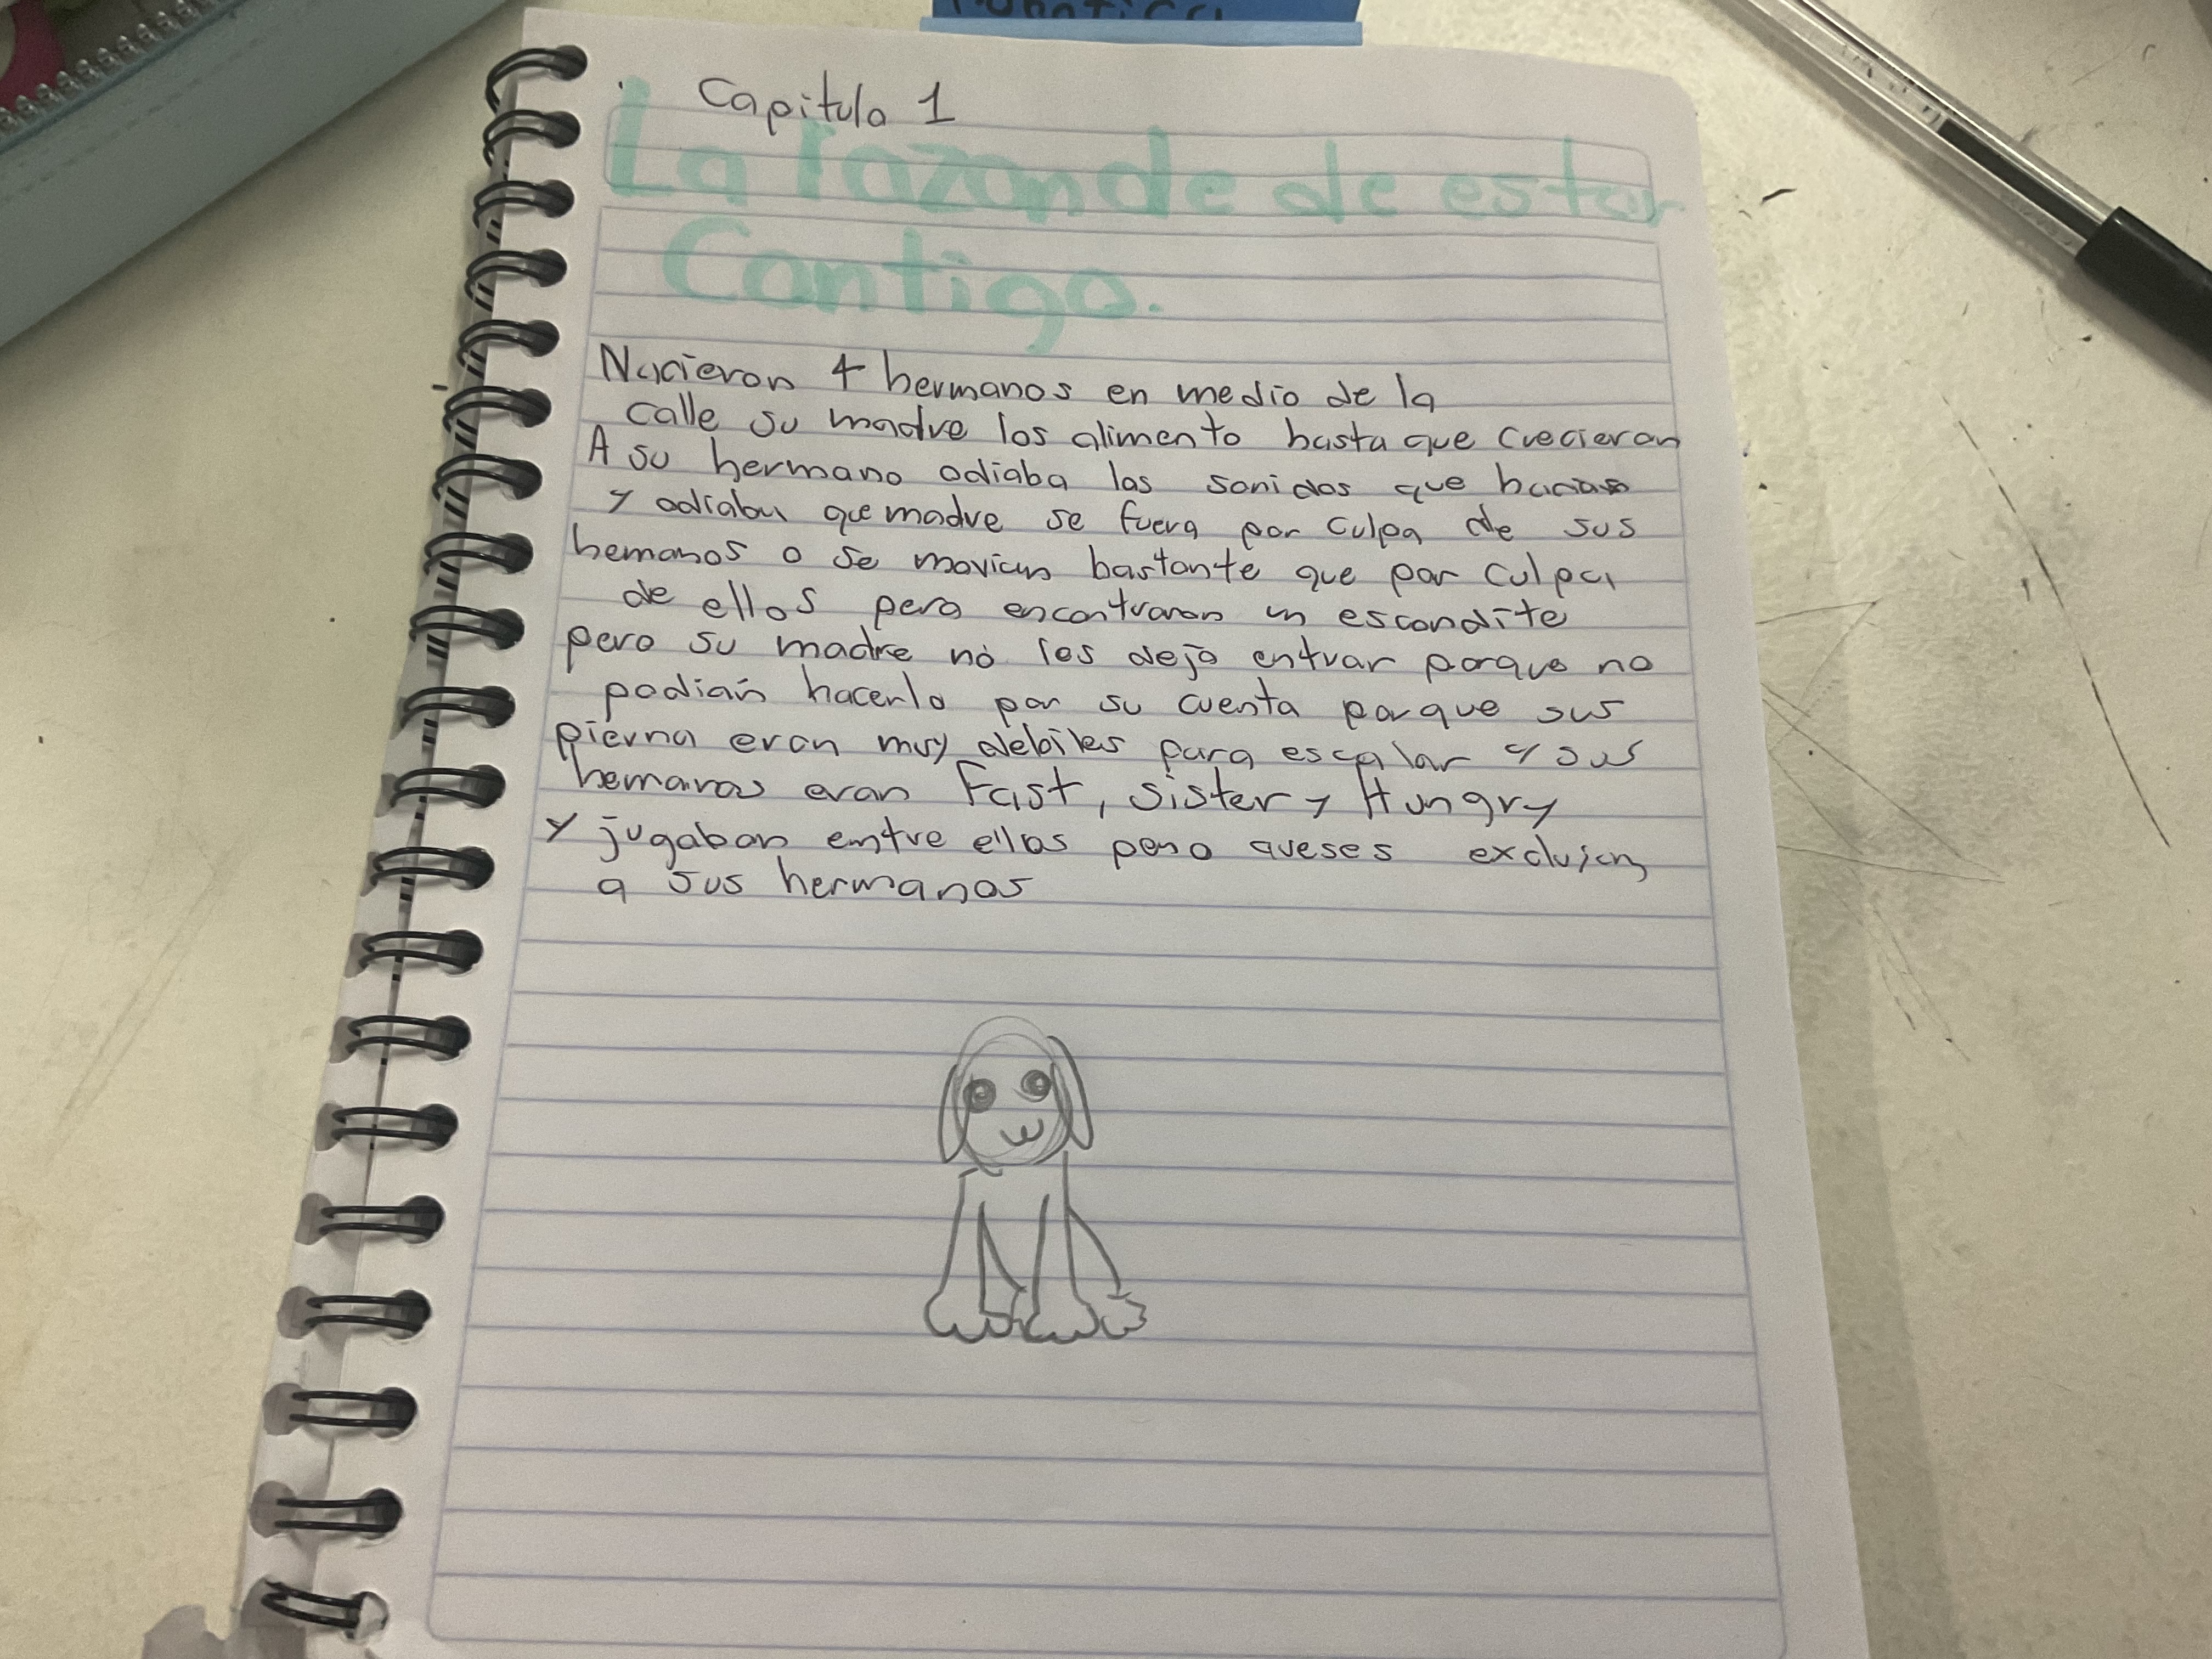 Capitulo 1
La razon de de estar
Contigo.
Nacieron 4 hermanos en medio de la
calle su madre los alimento hasta que crecieron
A su hermano odiaba los sonidos que hacian
y odiaba que madre se fuera por culpa de sus
hemanos o se movian bastante que por culpa
de ellos pero encontraron un escondite
pero su madre no les dejo entrar porque no
podian hacerlo por su cuenta porque sus
pierna eran muy debiles para escalar y sus
hemanos eran Fast, Sister y Hungry
y jugaban entre ellos pero aveses excluian
a sus hermanos